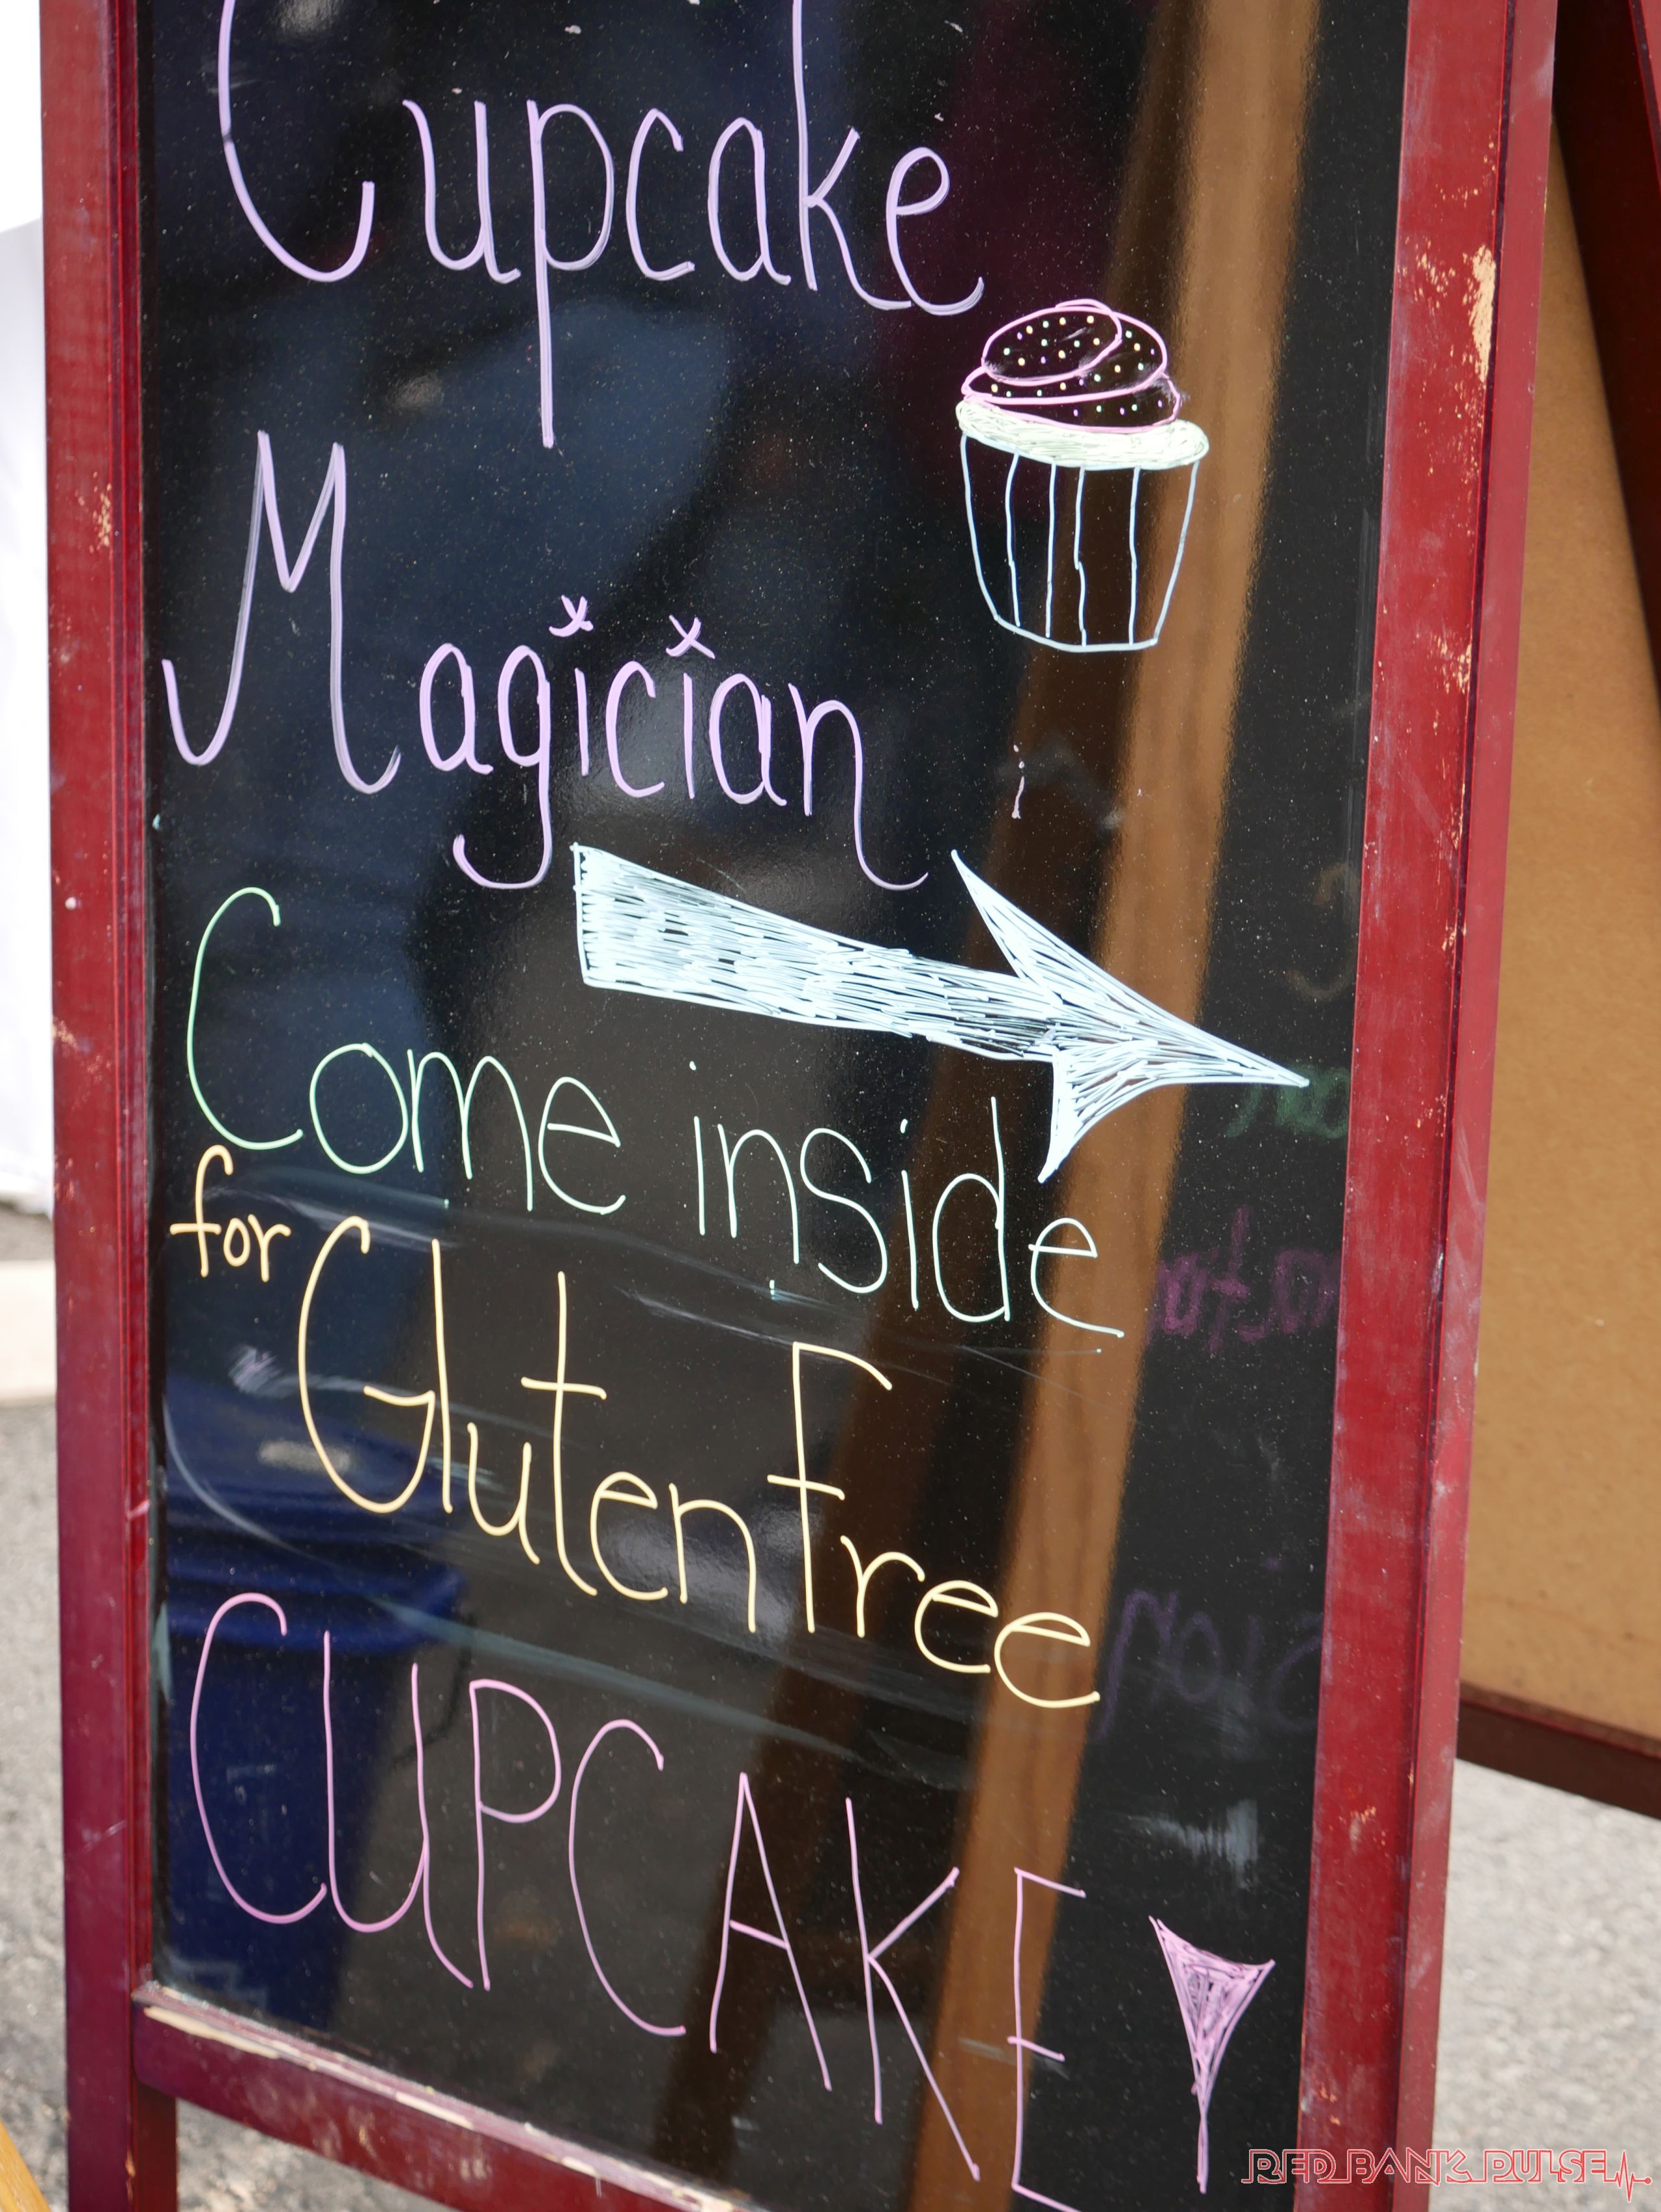 Cupcake
Magician
Come inside
for Gluten Free
CUPCAKE!
RED BANK PULSE